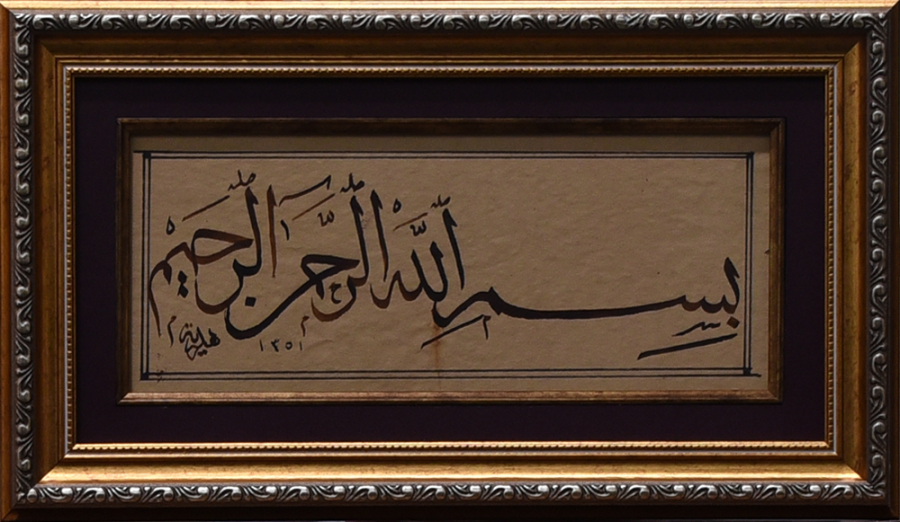 بسم الله الرحمن الرحيم
١٣٥١